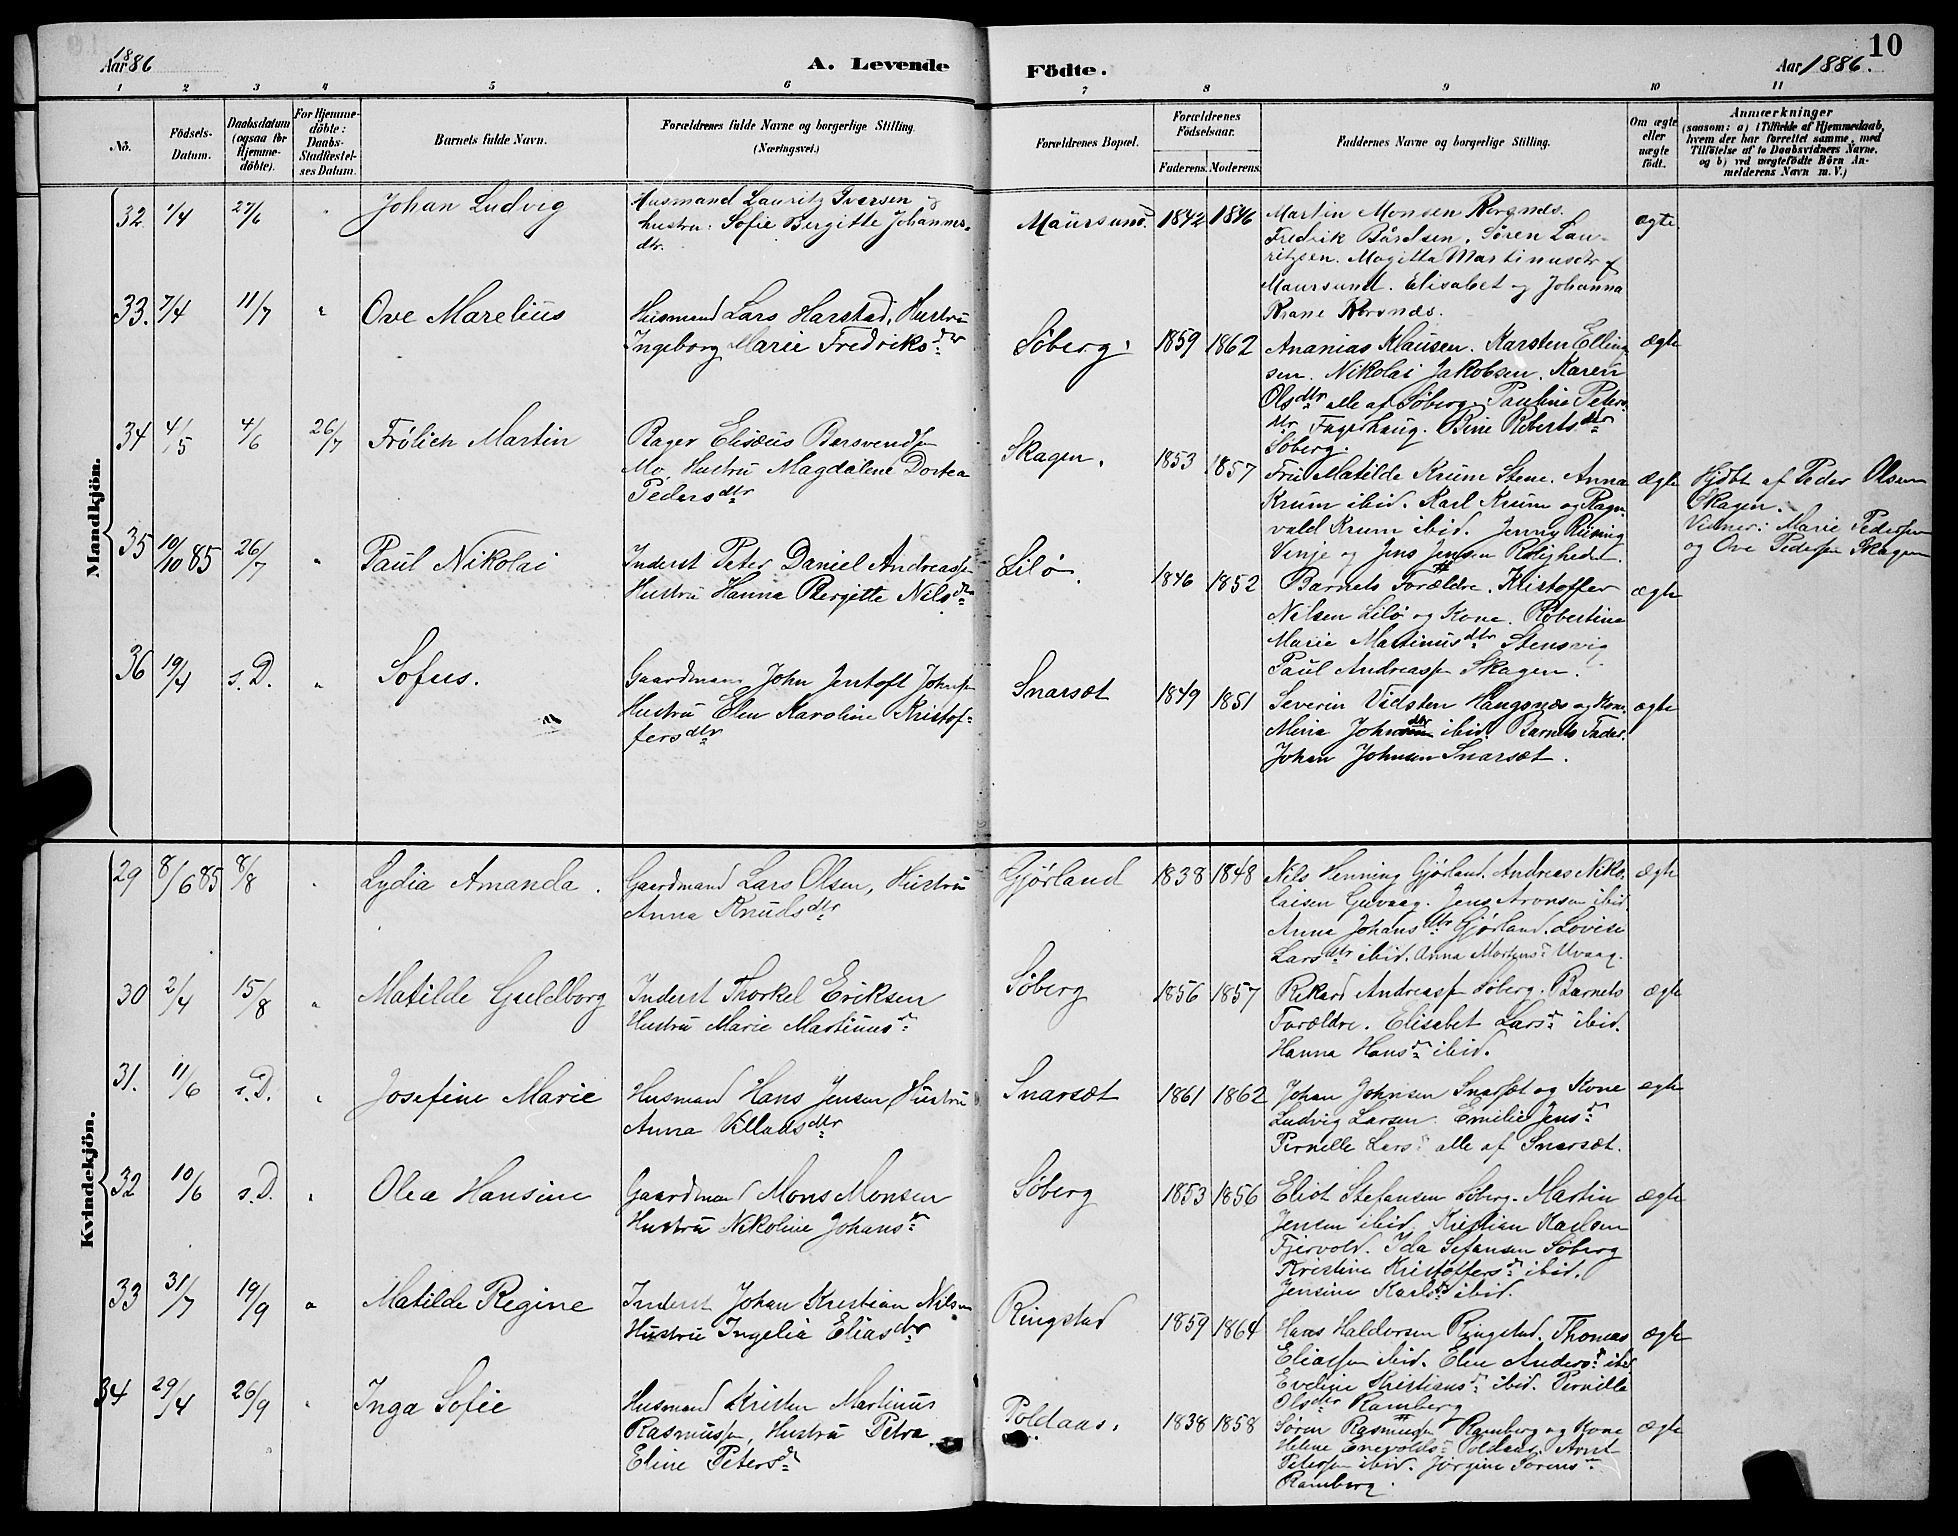 Aar 1886
A. Levende
Födte.
Aar 1886.
10
1 2 3 4 5 6 7 8 9 10 11
Nö.
Födsels-
Datum.
Daabsdatum
(ogsaa for
Hjemme-
döbte).
For Hjemme-
döbte:
Daabs-
Stadfæstel-
ses Datum.
Barnets fulde Navn.
Forældrenes fulde Navne og borgerlige Stilling.
(Næringsvei.)
Forældrenes Bopæl.
Forældrenes
Födselsaar.
Faderens. Moderens.
Faddernes Navne og borgerlige Stilling.
Om ægte
eller
uægte
födt.
Anmærkninger
(saasom: a) i Tilfælde af Hjemmedaab,
hvem der har forrettet samme, med
Tilföielse af to Daabsvidners Navne,
og b) ved uægtefödte Börn An-
melderens Navn m. V.)
Mandkjön.
32 1/4 27/6 " Johan Ludvig
Husmand Lauritz Iversen og
hustru: Sofie Birgitte Johannes-
dtr.
Maursund. 1842 1846
Martin Monsen
Fredrik Bårdsen, Søren Lau-
ritzsen. Magitta Martinusdtr af
Maursund. Elisabet og Johanna
Krane
ægte
33. 7/4 11/7 " Ove Marelius
Husmand Lars Harstad, Hustru
Ingeborg Marie Fredriksdtr
Søberg. 1859 1862
Ananias Klausen. Karsten Elling-
sen. Nikolai Jakobsen. Karen
Olsdtr alle af Søberg. Pauline Peters-
dtr Fagerhaug. Bine Robertsdtr
Søberg.
ægte
34 4/5 4/6 26/7 Frølich Martin
Bager Elisæus Barsvendsen
Mo. Hustru Magdalene Dortea
Pedersdtr
Skagen. 1853 1857
Fru Matilde Krum Stene. Anna
Krum ibid. Karl Krum og Ragn-
vald Krum ibid. Jenny Rüsing
Vinje og Jens Jensen Rolighedet.
ægte
Hjdbt af Peder Olsen
Skagen.
Vidner: Marie Pedersen
og Ove Pedersen Skagen
35 10/10 85 26/7 " Paul Nikolai
Inderst Peter Daniel Andreassen
Hustru Hanna Bergitte Nilsdtr
Lilø. 1846 1852
Barnets Forældre. Kristoffer
Nilsen Lilø og Kone. Robertine
Marie Martinusdtr Stensvig
Paul Andreassen Skagen.
ægte
36 19/4 s. D. " Sofus.
Gaardmand John Jentoft Johnsen
Hustru Elen Karoline Kristof-
fersdtr
Snarsæt 1849 1851
Severin Vidsten Haugsnæs og Kone.
Mina Johndtr ibid. Barnets Fader.
Johan Johnsen Snarsæt.
ægte
Kvindekjön.
29 8/6 85 8/8 " Lydia Amanda.
Gaardmand Lars Olsen, Hustru
Anna Knudsdtr
Gjørland 1838 1848
Nils Henning Gjørland. Andreas Niko-
laisen Guvaag. Jens Aronsen ibid.
Anna Johansdtr Gjørland. Lovise
Larsdtr ibid. Anna Mortensd. Uvaag.
ægte
30 2/4 15/8 " Matilde Guldborg
Inderst Thorkel Eriksen
Hustru Marie Martinusd.
Søberg 1856 1857
Rikard Andreassen Søberg. Barnets
Forældre. Elisabet Larsd. ibid.
Hanna Hansd. ibid.
ægte
31. 11/6 s. D. " Josefine Marie
Husmand Hans Jensen, Hustru
Anna Villadsdtr
Snarsæt 1861 1862
Johan Johnsen Snarsæt og Kone
Ludvig Larsen. Emilie Jensd.
Pernelle Larsd. alle af Snarsæt.
ægte
32 10/6 s. D. " Olea Hansine
Gaardmand Mons Monsen
Hustru Nikoline Johansd.
Søberg 1853 1856
Eliot Stefansen Søberg. Martin
Jensen ibid. Kristian Karlsen
Fjervold. Ida Stefansen Søberg
Kristine Kristoffersd. ibid.
Jensine Karlsd. ibid.
ægte
33 31/7 19/9 " Matilde Regine
Inderst Johan Kristian Nilsen
Hustru Ingelia Eliasdtr
Ringstad 1859 1864
Hans Haldorsen Ringstad. Thomas
Eliassen ibid. Elen Andersd. ibid
Eveline Kristiansd. ibid. Pernille
Olsdtr Ramberg
ægte
34 29/4 26/9 " Inga Sofie
Husmand Kristen Martinus
Rasmussen, Hustru Petra
Eline Petersd.
Poldaas. 1838 1858
Søren Rasmussen Ramberg og Kone
Helene Enevoldsd. Poldaas. Arnt
Petersen ibid. Jørgine Sørensd.
Ramberg.
ægte